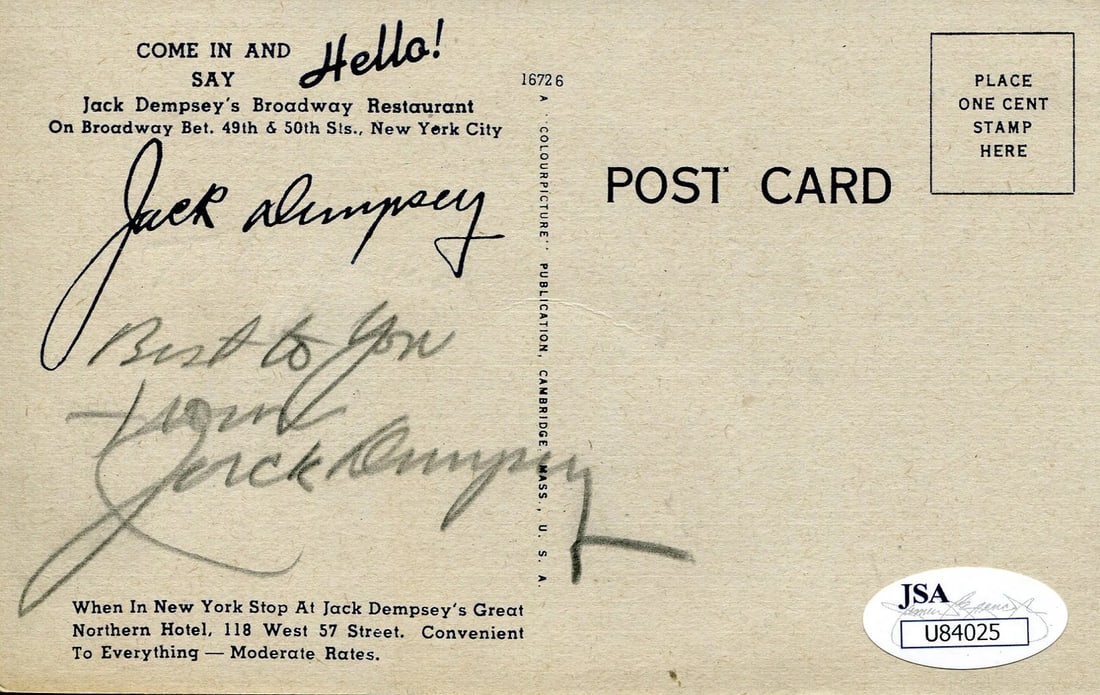 COME IN AND
SAY Hello!
Jack Dempsey's Broadway Restaurant
On Broadway Bet. 49th & 50th Sts., New York City
Jack Dempsey
Best to You
from
Jack Dempsey
When In New York Stop At Jack Dempsey's Great
Northern Hotel, 118 West 57 Street. Convenient
To Everything — Moderate Rates.
16726
A "COLOURPICTURE" PUBLICATION, CAMBRIDGE, MASS., U. S. A.
POST CARD
PLACE
ONE CENT
STAMP
HERE
JSA
U84025